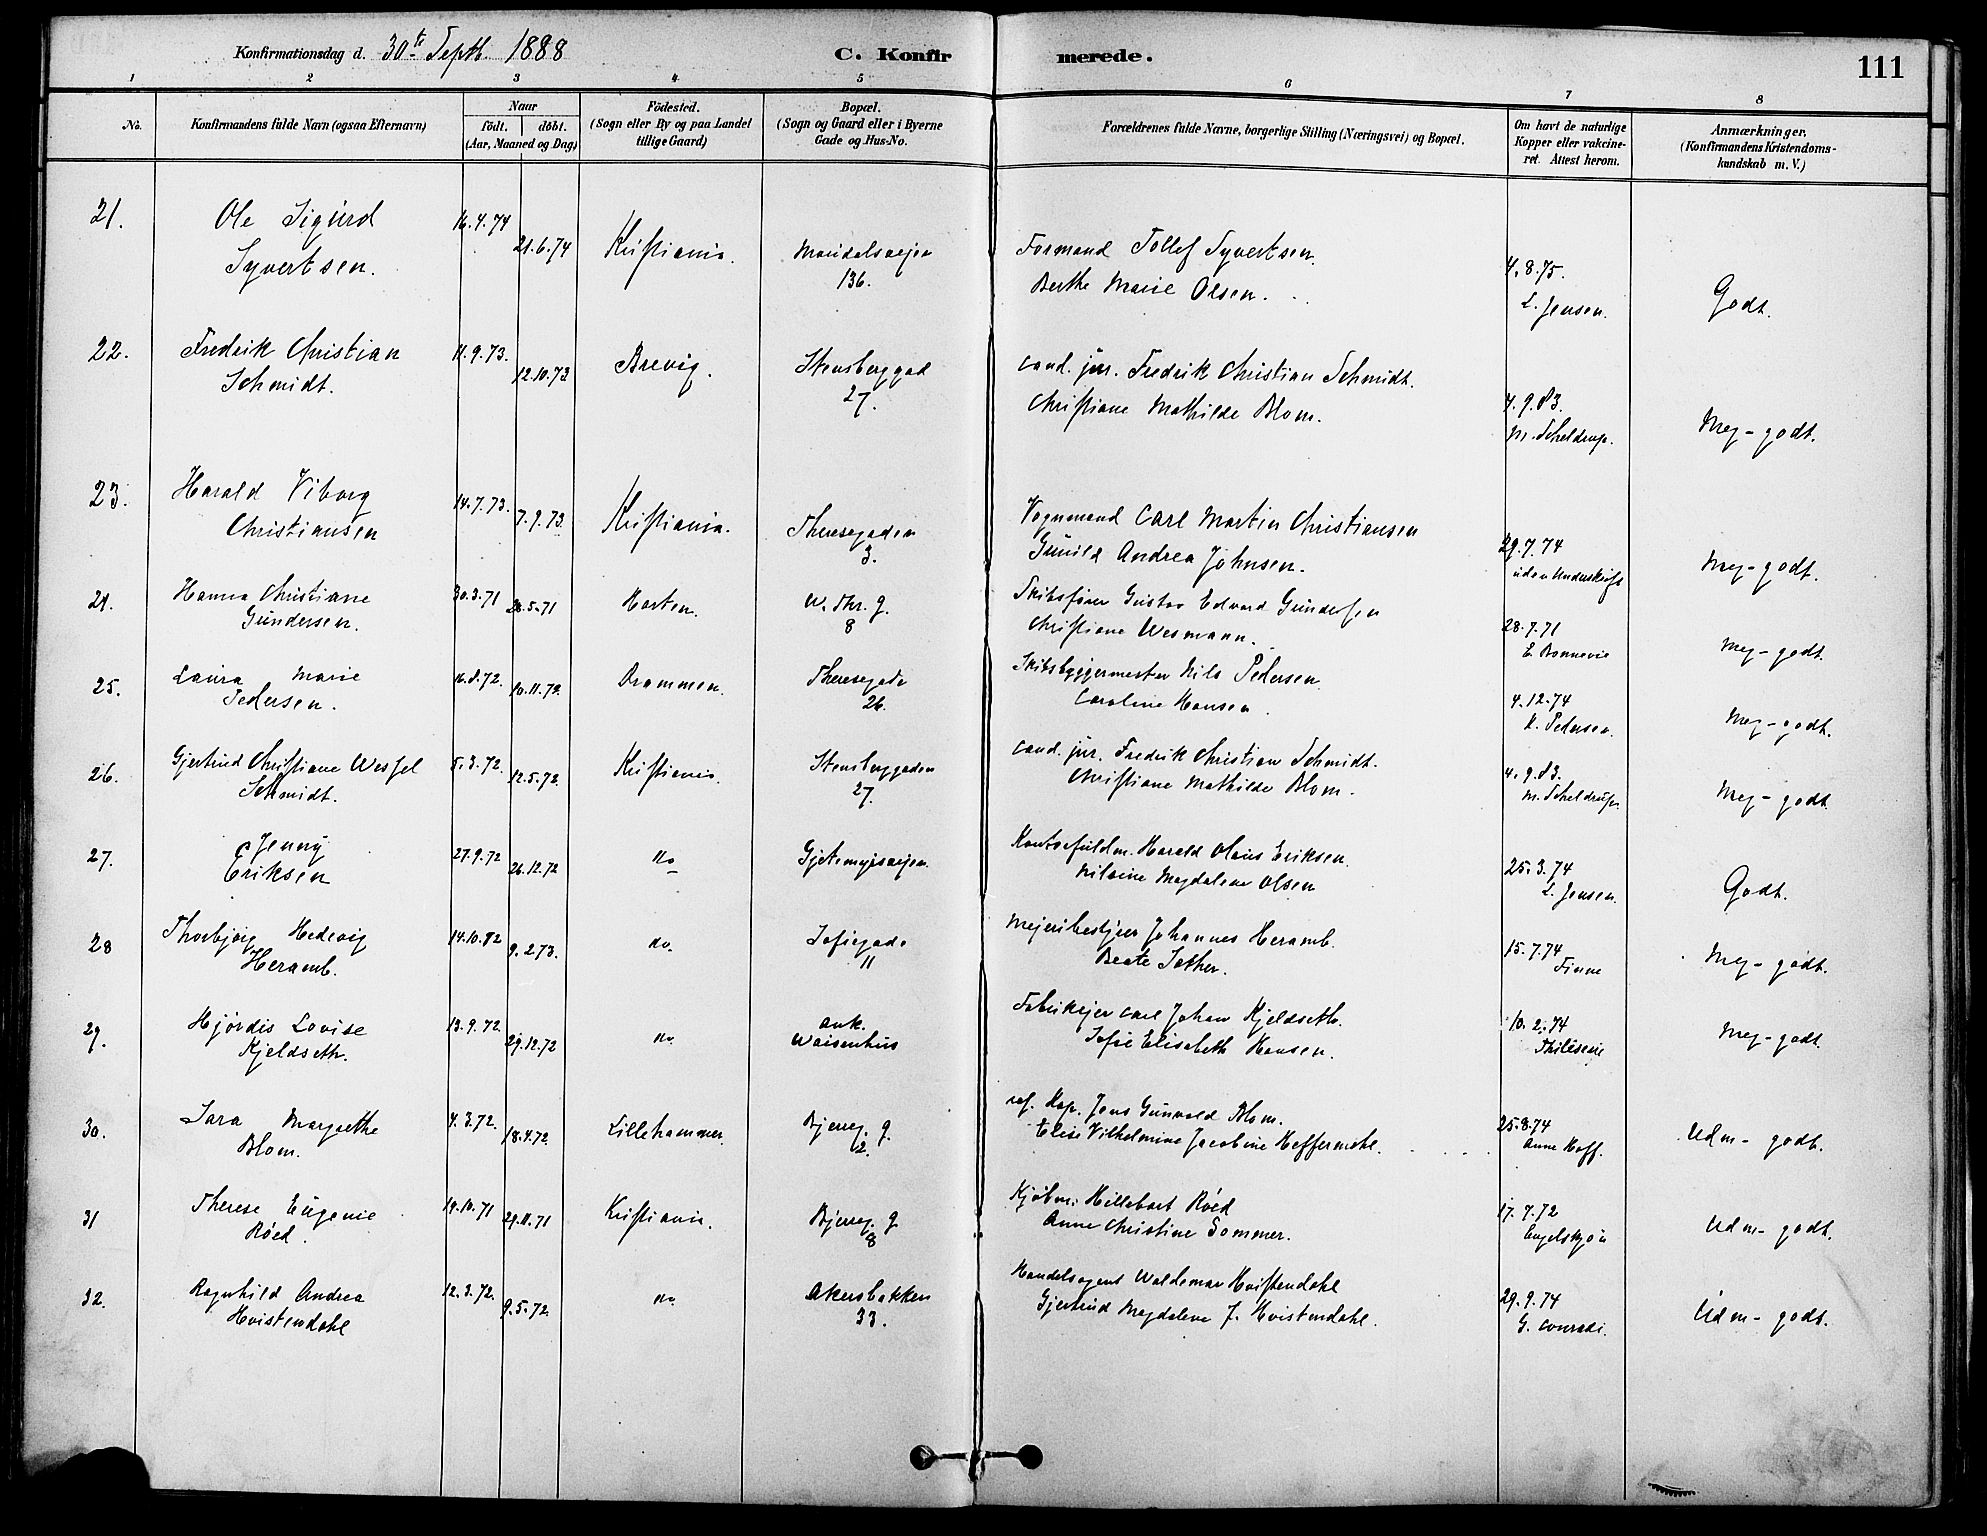 Konfirmationsdag d. 30te Septb. 1888
C. Konfirmerede.
111
1 2 3 4 5 6 7 8
No.
Konfirmandens fulde Navn (ogsaa Efternavn)
Naar
født. døbt.
(Aar, Maaned og Dag)
Födested.
(Sogn eller By og paa Landet
tillige Gaard)
Bopæl.
(Sogn og Gaard eller i Byerne
Gade og Hus-No.
Forældrenes fulde Navne, borgerlige Stilling (Næringsvei) og Bopæl.
Om havt de naturlige
Kopper eller vakcine-
ret. Attest herom.
Anmærkninger.
(Konfirmandens Kristendoms-
kundskab m. V.)
21. Ole Sigurd
Syvertsen.
16.4.74 21.6.74 Kristiania. Maridalsveien
136.
Formand Tollef Syvertsen.
Berthe Marie Olsen.
4.8.75.
L. Jensen.
Godt.
22. Fredrik Christian
Schmidt.
11.9.73. 12.10.73 Brevig. Stensberggad
27.
cand. jur. Fredrik Christian Schmidt.
Christiane Mathilde Blom.
4.9.83.
M. Scheldrup.
Meg- godt.
23. Harald Viborg
Christiansen
14.7.73. 7.9.73. Kristiania. Theresegaden
3.
Vognmand Carl Martin Christiansen
Gunild Andrea Johnsen.
29.7.74
uden Underskrift
Meg- godt.
24. Hanna Christiane
Gundersen.
30.3.71 28.5.71 Horten. W. Thr. g.
8
Skibsfører Gustav Edvard Gundersen
Christiane Wesmann.
28.7.71
E. Bonnevie
Meg- godt.
25. Laura Marie
Pedersen.
16.8.72. 10.11.72. Drammen. Theresegade
26.
Skibsbyggermester Nils Pedersen
Caroline Hansen.
4.12.74
K. Pedersen.
Meg- godt.
26. Gjertrud Christiane Wessel
Schmidt.
5.3.72. 12.5.72. Kristiania. Stensberggaden
27.
cand. jur. Fredrik Christian Schmidt.
Christiane Mathilde Blom.
4.9.83.
M. Scheldrup.
Meg- godt.
27. Jenny
Eriksen
27.9.72 26.12.72 do Gjetemyrsveien.
Kontorfuldm. Harald Olaus Eriksen.
Nilsine Magdalene Olsen
25.3.74
L. Jensen.
Godt.
28 Thorbjørg Hedevig
Heramb.
14.10.72 9.2.73. do. Sofiegade
11
Mejeribestyrer Johannes Heramb.
Beate Sæther.
15.7.74
Finne
Meg- godt.
29. Hjørdis Lovise
Kjeldseth.
13.9.72. 29.12.72 do. Ank.
Waisenhus
Fabrikejer Carl Johan Kjeldseth.
Sofie Elisabeth Hansen.
10.2.74
Meg- godt.
30. Sara Margrethe
Blom.
4.3.72. 18.4.72. Lillehammer. Bjerreg. g.
12.
Kap. Jens Gunvald Blom.
Elise Vilhelmine Jacobine Heffermehl.
25.8.74
Anne Hoff.
Udm- godt.
31 Therese Eugenie
Røed.
19.10.71 29.11.71 Kristiania. Bjerreg. g
8
Kjøbm. Hillebart Røed
Anne Christine Sommer.
17.7.72
Engelskjøn
Udm- godt.
32. Ragnhild Andrea
Hvistendahl
12.3.72. 9.5.72. do. Akersbakken
33.
Handelsagent Waldemar Hvistendahl
Gjertrud Magdalene J. Hvistendahl.
29.9.74
G. Conradi.
Udm- godt.